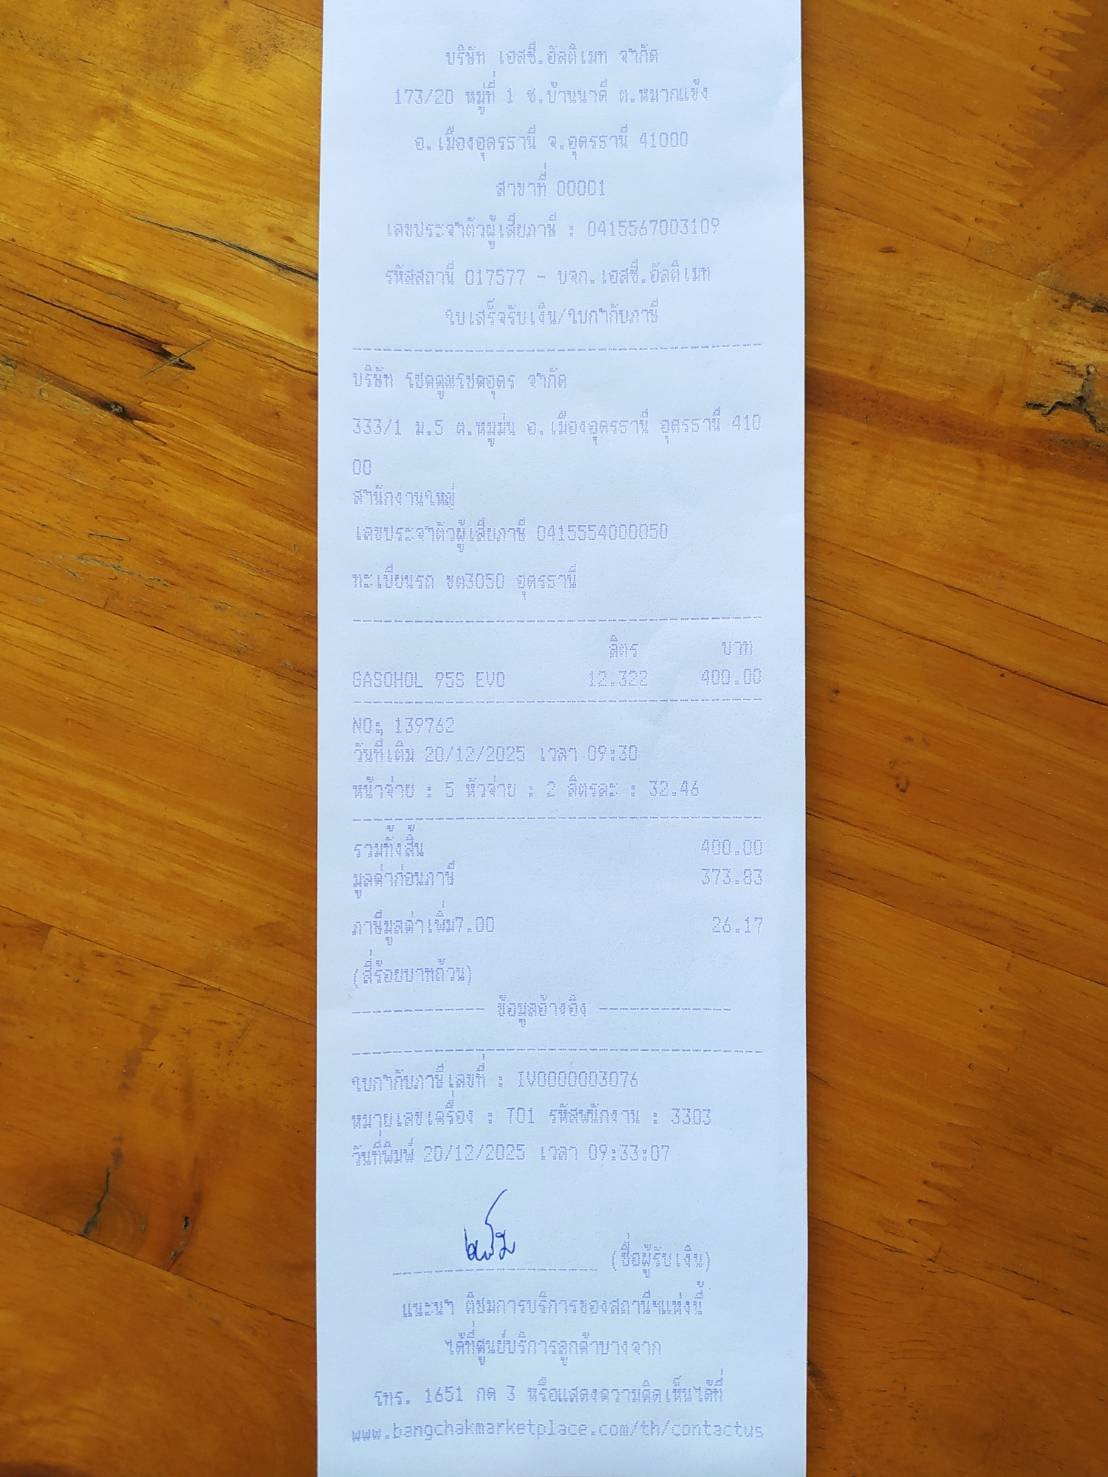 บริษัท เอสซี.อัลติเมท จำกัด
173/20 หมู่ที่ 1 ซ.บ้านนาดี ต.หมากแข้ง
อ.เมืองอุดรธานี จ.อุดรธานี 41000
สาขาที่ 00001
เลขประจำตัวผู้เสียภาษี : 0415567003109
รหัสสถานี 017577 - บจก.เอสซี.อัลติเมท
ใบเสร็จรับเงิน/ใบกำกับภาษี
บริษัท โชคคูณโชคอุดร จำกัด
333/1 ม.5 ต.หมูม่น อ.เมืองอุดรธานี อุดรธานี 410
00
สำนักงานใหญ่
เลขประจำตัวผู้เสียภาษี 0415554000050
ทะเบียนรถ ขต3050 อุดรธานี
ลิตร บาท
GASOHOL 95S EVO 12.322 400.00
NO: 139762
วันที่เติม 20/12/2025 เวลา 09:30
หน้าจ่าย : 5 หัวจ่าย : 2 ลิตรละ : 32.46
รวมทั้งสิ้น 400.00
มูลค่าก่อนภาษี 373.83
ภาษีมูลค่าเพิ่ม7.00 26.17
(สี่ร้อยบาทถ้วน)
------------- ข้อมูลอ้างอิง -------------
ใบกำกับภาษีเลขที่ : IV0000003076
หมายเลขเครื่อง : T01 รหัสพนักงาน : 3303
วันที่พิมพ์ 20/12/2025 เวลา 09:33:07
(ชื่อผู้รับเงิน)
แนะนำ ติชมการบริการของสถานีฯแห่งนี้
ได้ที่ศูนย์บริการลูกค้าบางจาก
โทร. 1651 กด 3 หรือแสดงความคิดเห็นได้ที่
www.bangchakmarketplace.com/th/contactus